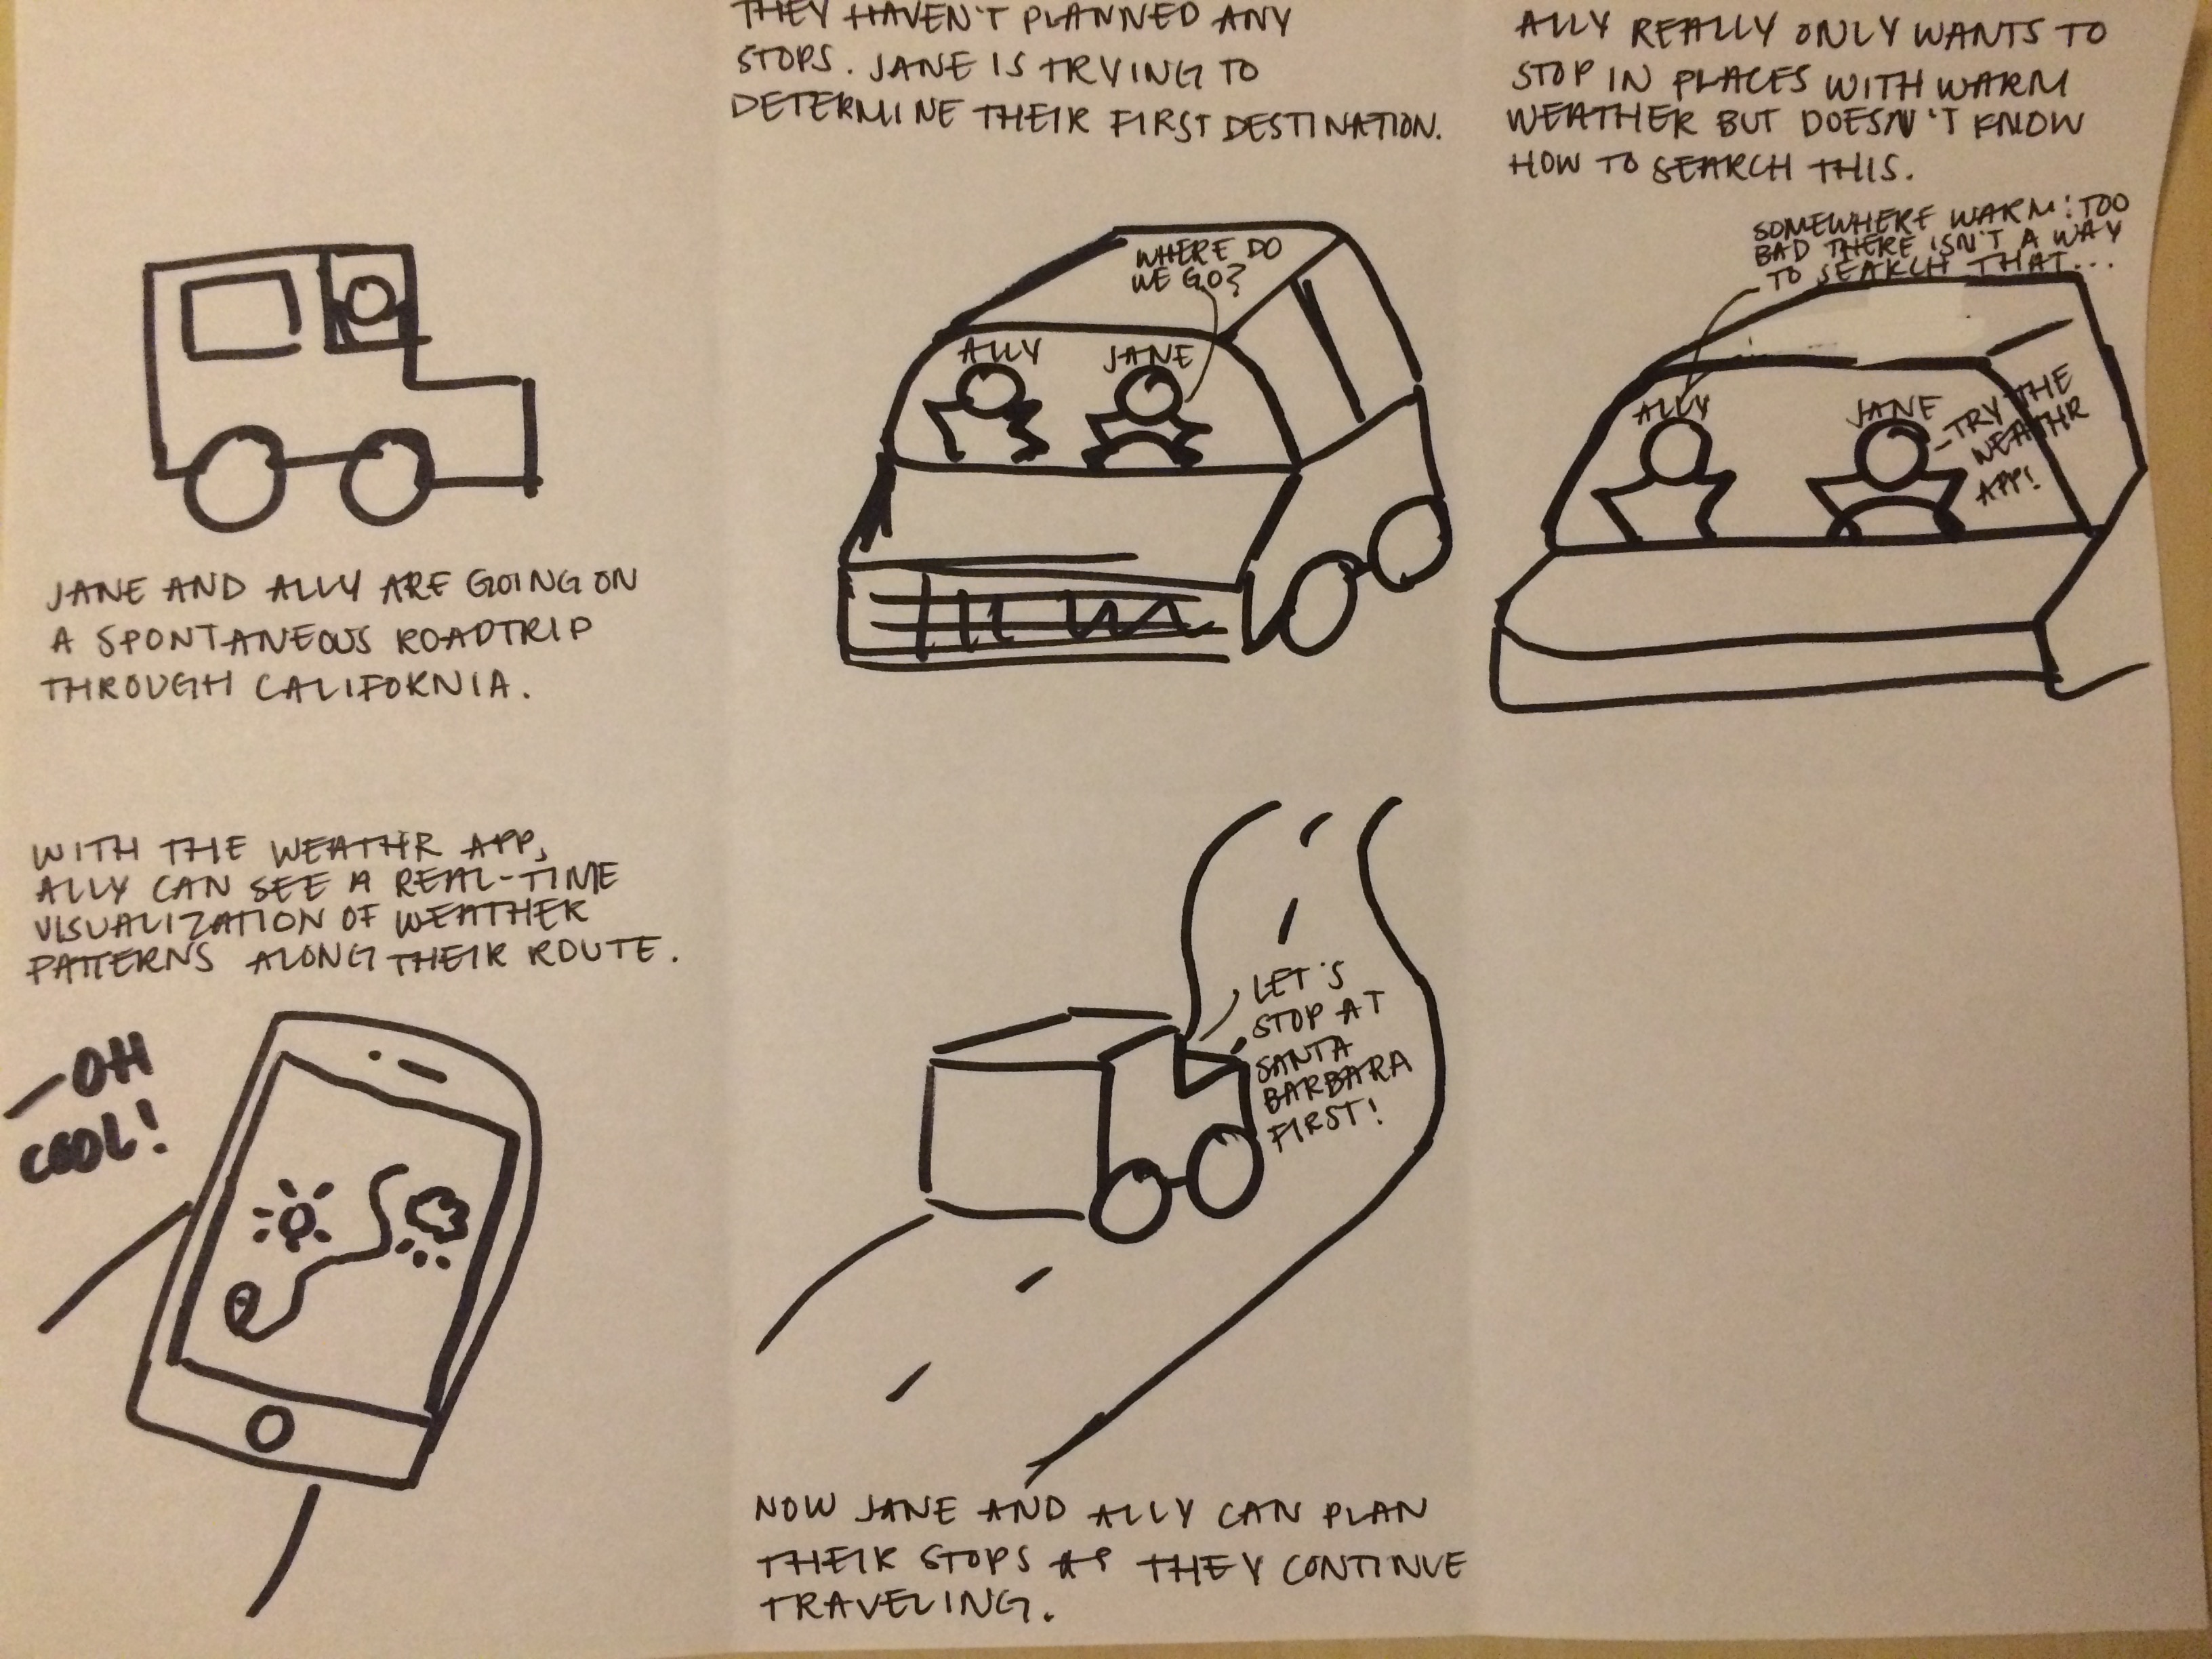 JANE AND ALLY ARE GOING ON
A SPONTANEOUS ROADTRIP
THROUGH CALIFORNIA.
THEY HAVEN'T PLANNED ANY
STOPS. JANE IS TRYING TO
DETERMINE THEIR FIRST DESTINATION.
WHERE DO
WE GO?
ALLY
JANE
ALLY REALLY ONLY WANTS TO
STOP IN PLACES WITH WARM
WEATHER BUT DOESN'T KNOW
HOW TO SEARCH THIS.
SOMEWHERE WARM! TOO
BAD THERE ISN'T A WAY
TO SEARCH THAT...
ALLY
JANE
TRY THE
WEATHR
APP!
WITH THE WEATHR APP,
ALLY CAN SEE A REAL-TIME
VISUALIZATION OF WEATHER
PATTERNS ALONG THEIR ROUTE.
OH
COOL!
LET'S
STOP AT
SANTA
BARBARA
FIRST!
NOW JANE AND ALLY CAN PLAN
THEIR STOPS AS THEY CONTINUE
TRAVELING.